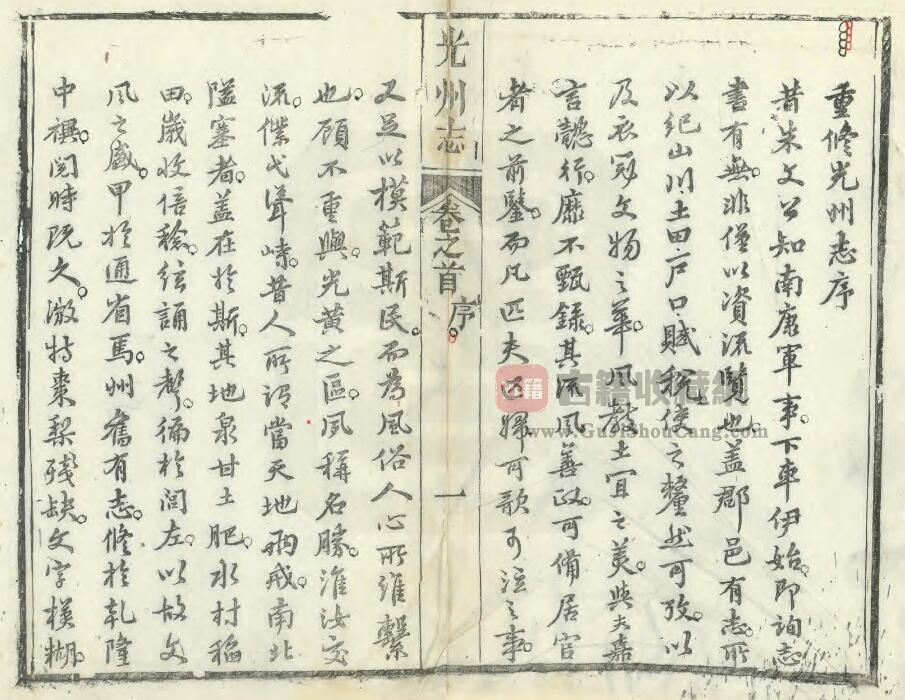 重修光州志序
昔朱文公知南康軍事下車伊始即詢志
書有無非僅以資流覽也盖郡邑有志所
以紀山川土田户口賦稅使之釐然可攷以
及衣冠文物之華風教土宜之美與夫嘉
言懿行靡不甄錄其流風善政可備居官
者之前鑒而凡匹夫匹婦可歌可泣之事
光州志
卷之首
序
一
又足以模範斯民而為風俗人心所維繫
也顧不重與光黄之區夙稱名勝淮汝交
流僕弋聳峙昔人所謂當天地兩戒南北
隘塞者盖在於斯其地泉甘土肥水村稻
田歲收倍稔弦誦之聲徧於閭左以故文
風之盛甲於通省焉州舊有志修於乾隆
中禩閱時既久漶特棗梨殘缺文字模糊
古籍收藏
www.GujiShouCang.com